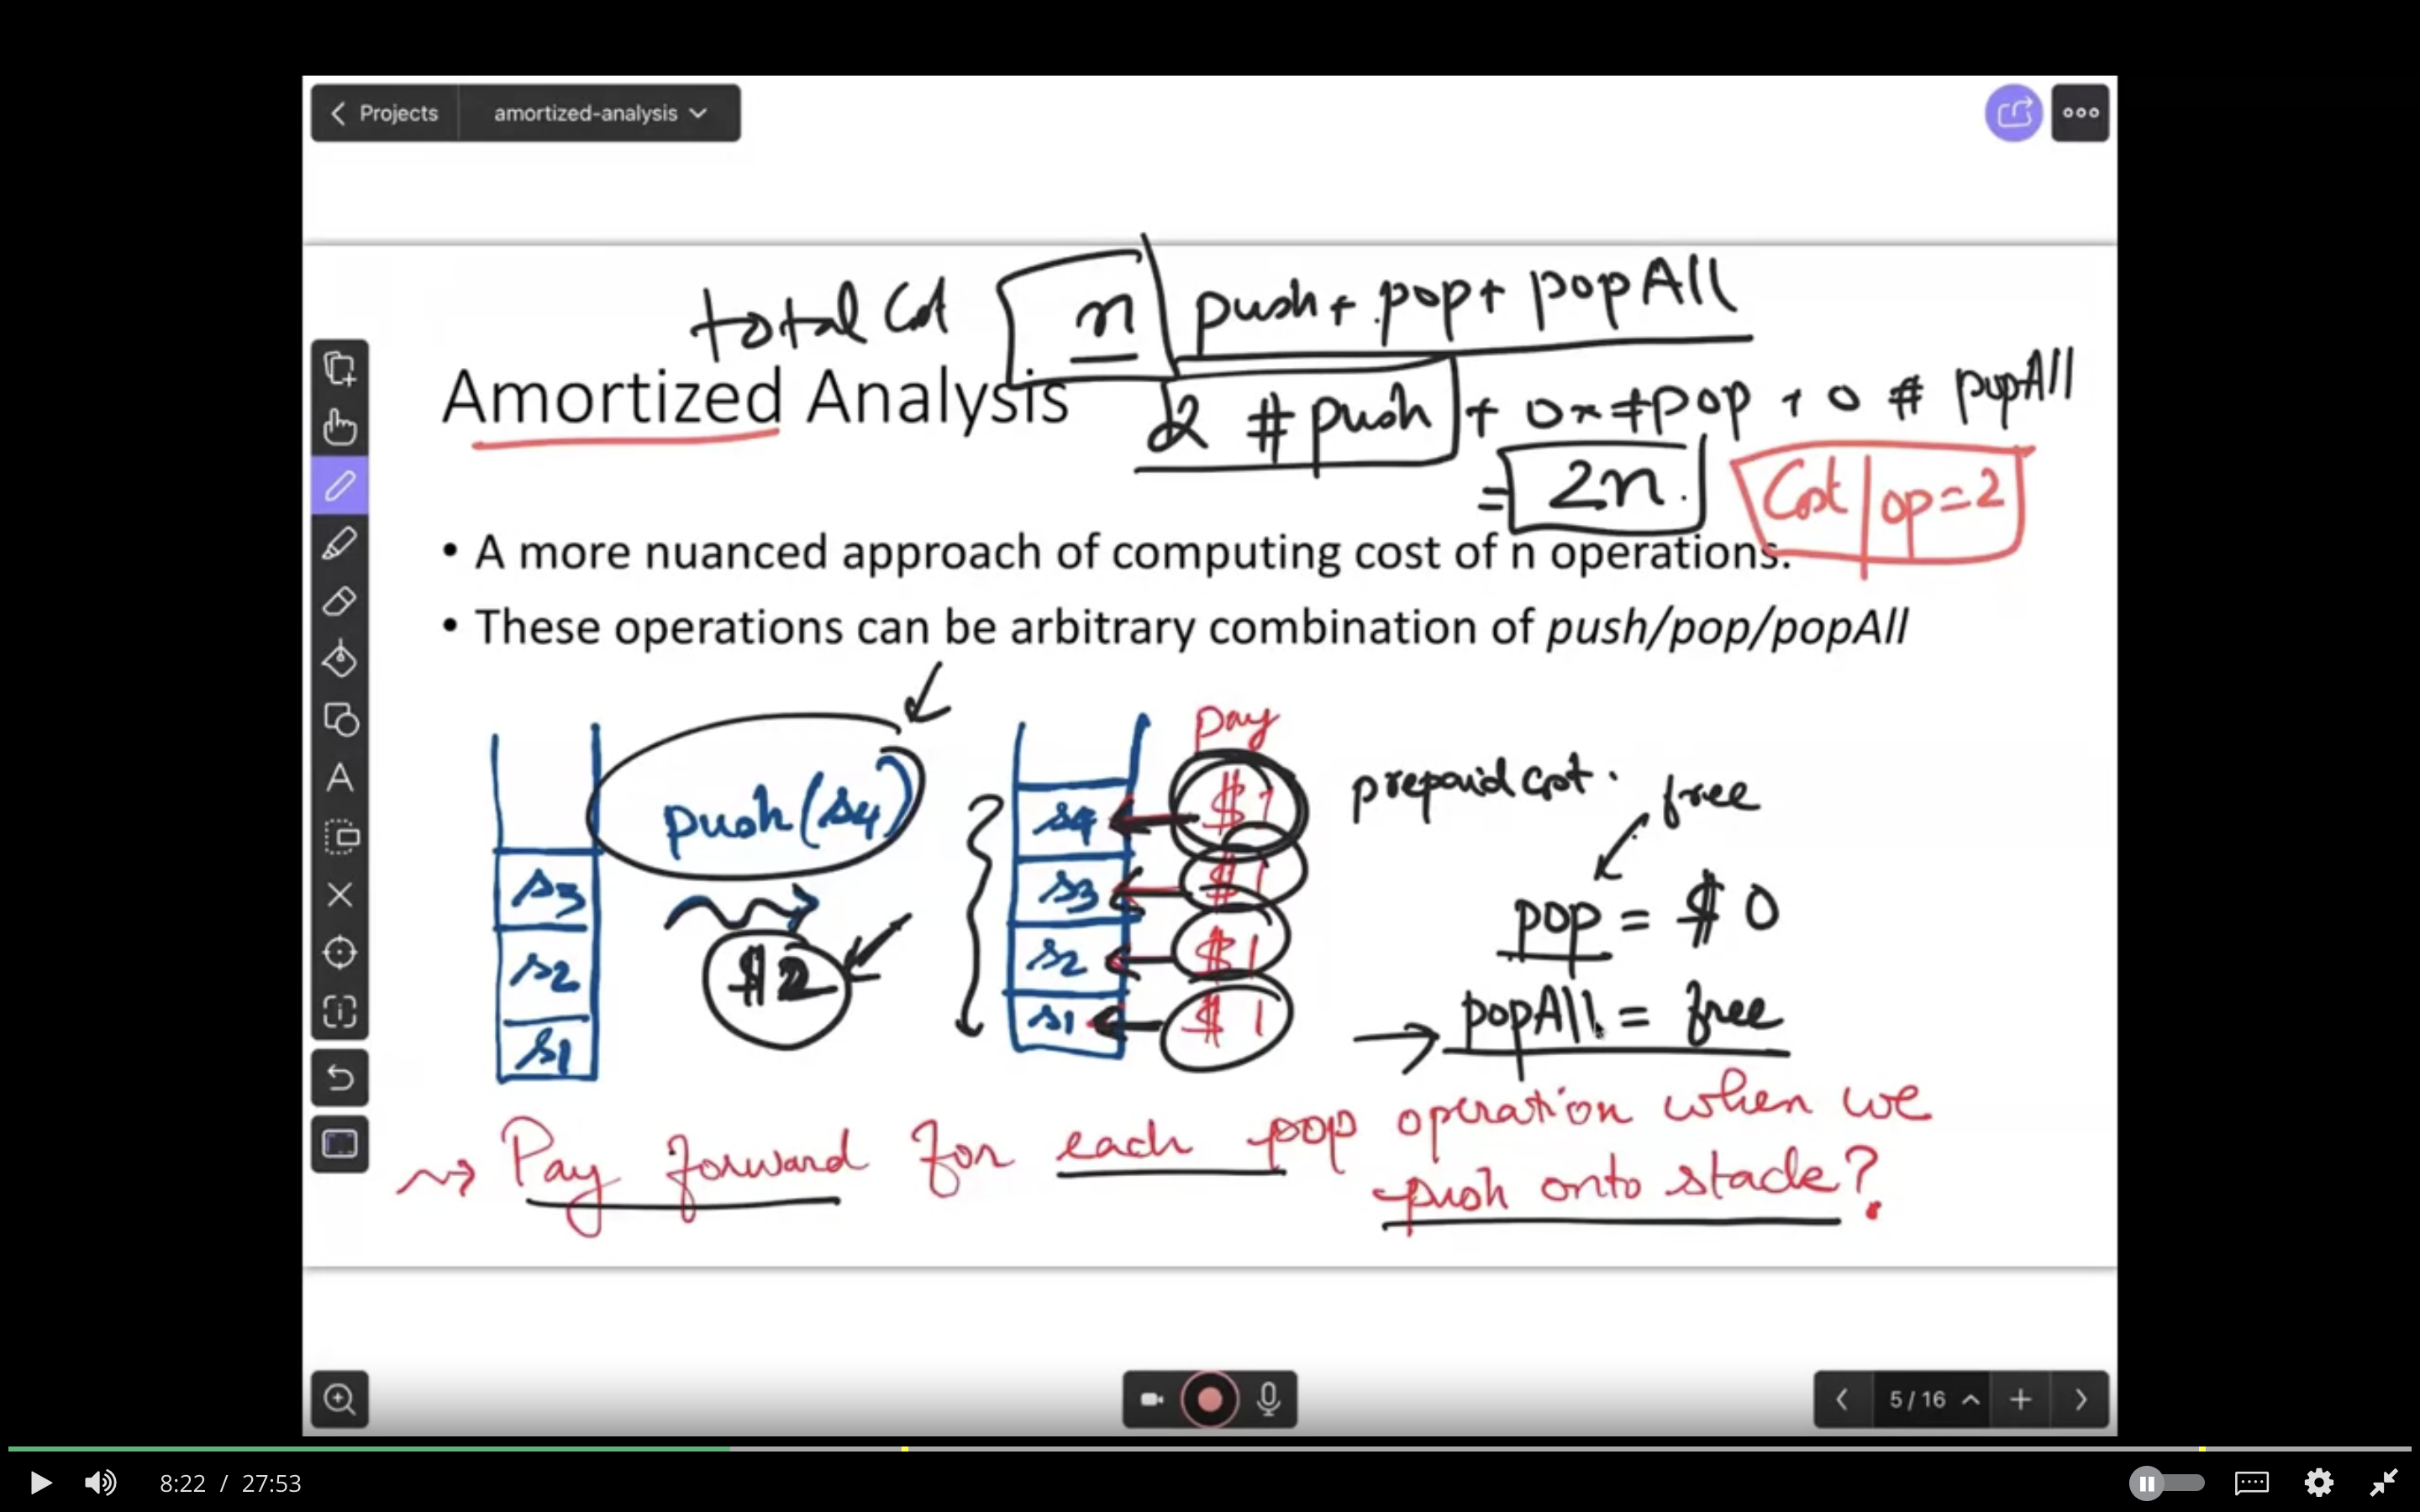 Projects amortized-analysis
total Cost n push + pop + popAll
Amortized Analysis
2 #push + 0 * #pop + 0 # popAll
= 2n.
Cost/op=2
• A more nuanced approach of computing cost of n operations.
• These operations can be arbitrary combination of push/pop/popAll
push(s4)
s3
s2
s1
$2
pay
s4 $1
s3 $1
s2 $1
s1 $1
prepaid cost.
free
pop = $ 0
popAll = free
Pay forward for each pop operation when we
push onto stack?
5 / 16
8:22 / 27:53